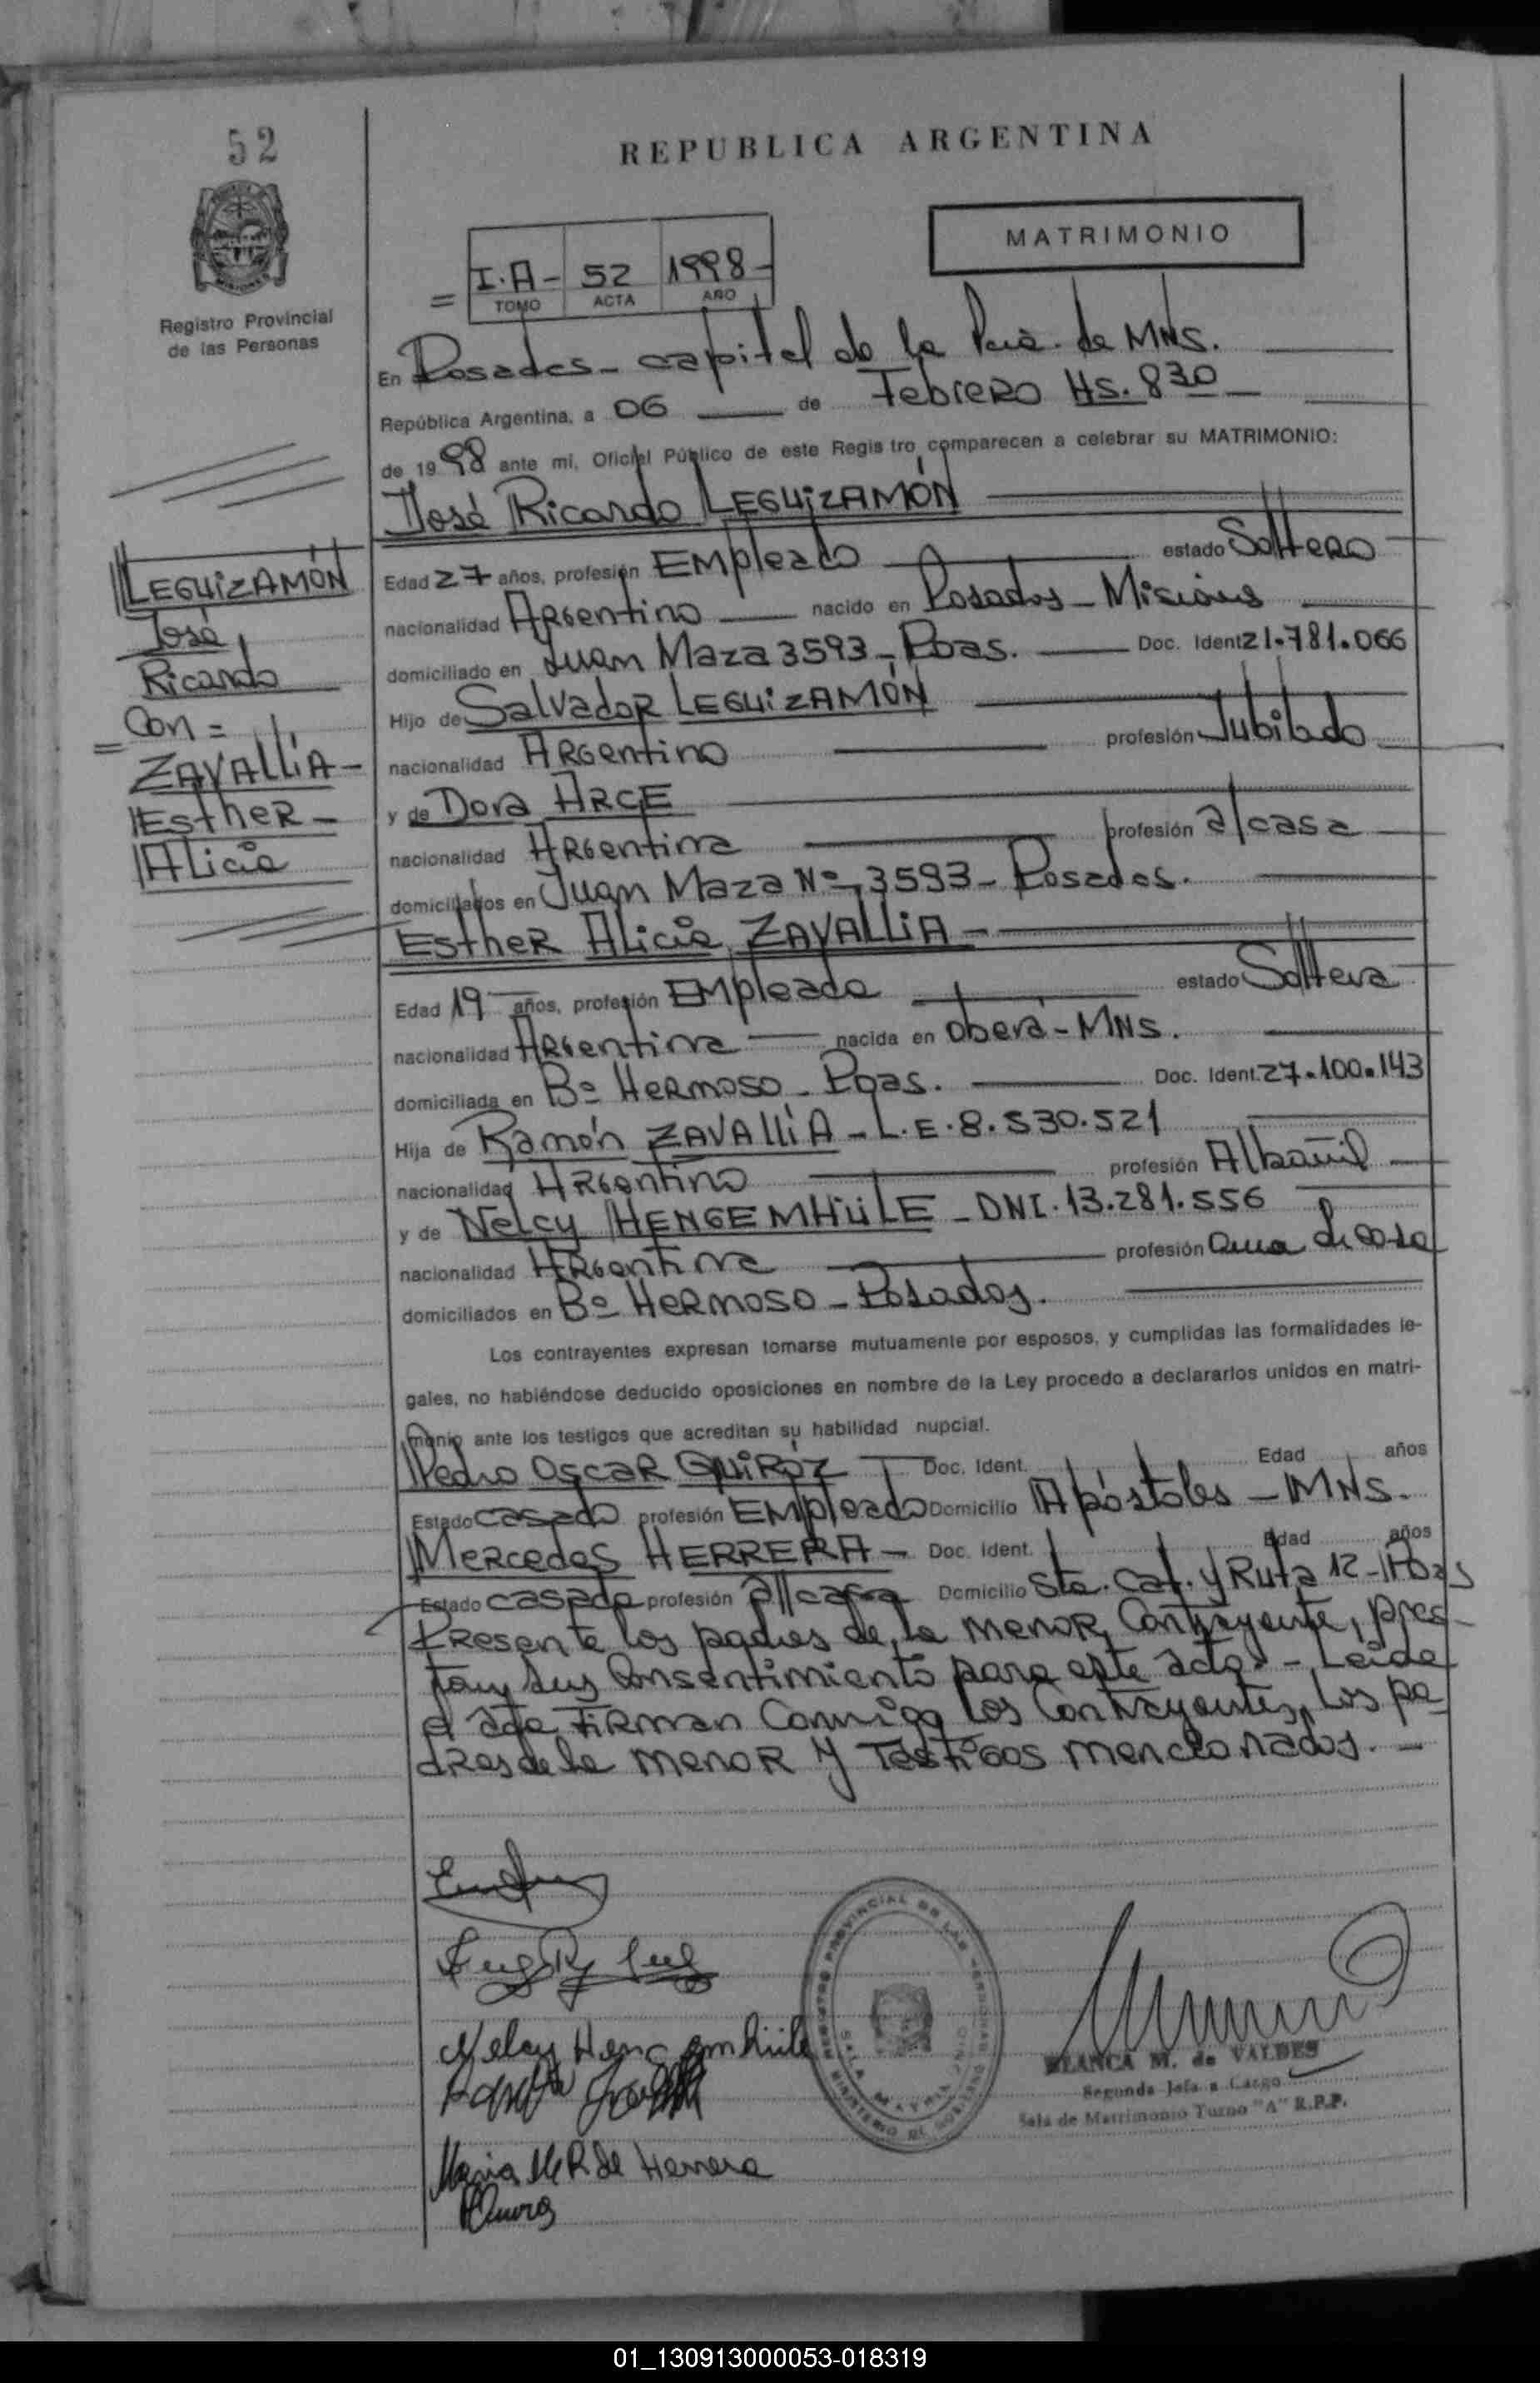 52
REPUBLICA ARGENTINA
MATRIMONIO
I.A- 52 1998-
TOMO ACTA AÑO
Registro Provincial
de las Personas
En Posadas - capital de la Pcia. de MNS.
República Argentina, a 06 de Febrero Hs. 830
de 1998 ante mi, Oficial Público de este Registro comparecen a celebrar su MATRIMONIO:
José Ricardo LEGUIZAMÓN
LEGUIZAMÓN
José
Ricardo
Con =
ZAVALLIA-
Esther-
Alicia
Edad 27 años, profesión Empleado estado Soltero
nacionalidad Argentino nacido en Posadas - Misiones
domiciliado en Juan Maza 3593 - Pdas. Doc. Ident 21.781.066
Hijo de Salvador LEGUIZAMÓN
nacionalidad Argentino profesión Jubilado
y de Dora ARCE
nacionalidad Argentina profesión a/casa
domiciliados en Juan Maza Nº 3593 - Posadas.
Esther Alicia ZAVALLIA -
Edad 19 años, profesión Empleada estado Soltera
nacionalidad Argentina nacida en Oberá - MNS.
domiciliada en Bº Hermoso - Pdas. Doc. Ident. 27.100.143
Hija de Ramón ZAVALLIA - L.E. 8.530.521
nacionalidad Argentino profesión Albañil
y de Nelcy HENGEMHÜLE - DNI. 13.281.556
nacionalidad Argentina profesión ama de casa
domiciliados en Bº Hermoso - Posadas.
Los contrayentes expresan tomarse mutuamente por esposos, y cumplidas las formalidades le-
gales, no habiéndose deducido oposiciones en nombre de la Ley procedo a declararlos unidos en matri-
monio ante los testigos que acreditan su habilidad nupcial.
Pedro Oscar QUIROZ Doc. Ident. Edad años
Estado casado profesión Empleado Domicilio Apóstoles - MNS.
Mercedes HERRERA - Doc. Ident. Edad años
Estado casada profesión a/casa Domicilio Sta. Cat. y Ruta 12 - Pdas
Presente los padres de la menor Contrayente, pres-
tan sus Consentimiento para este acto. - Leida
el acta Firman Conmigo los Contrayentes, los pa-
dres de la menor y Testigos mencionados. -
Nelcy Hengemhüle
Maria M R de Herrera
REGISTRO PROVINCIAL DE LAS PERSONAS
MINISTERIO DE GOBIERNO
BLANCA M. de VALDES
Segunda Jefa a Cargo
Sala de Matrimonio Turno "A" R.P.P.
01_130913000053-018319